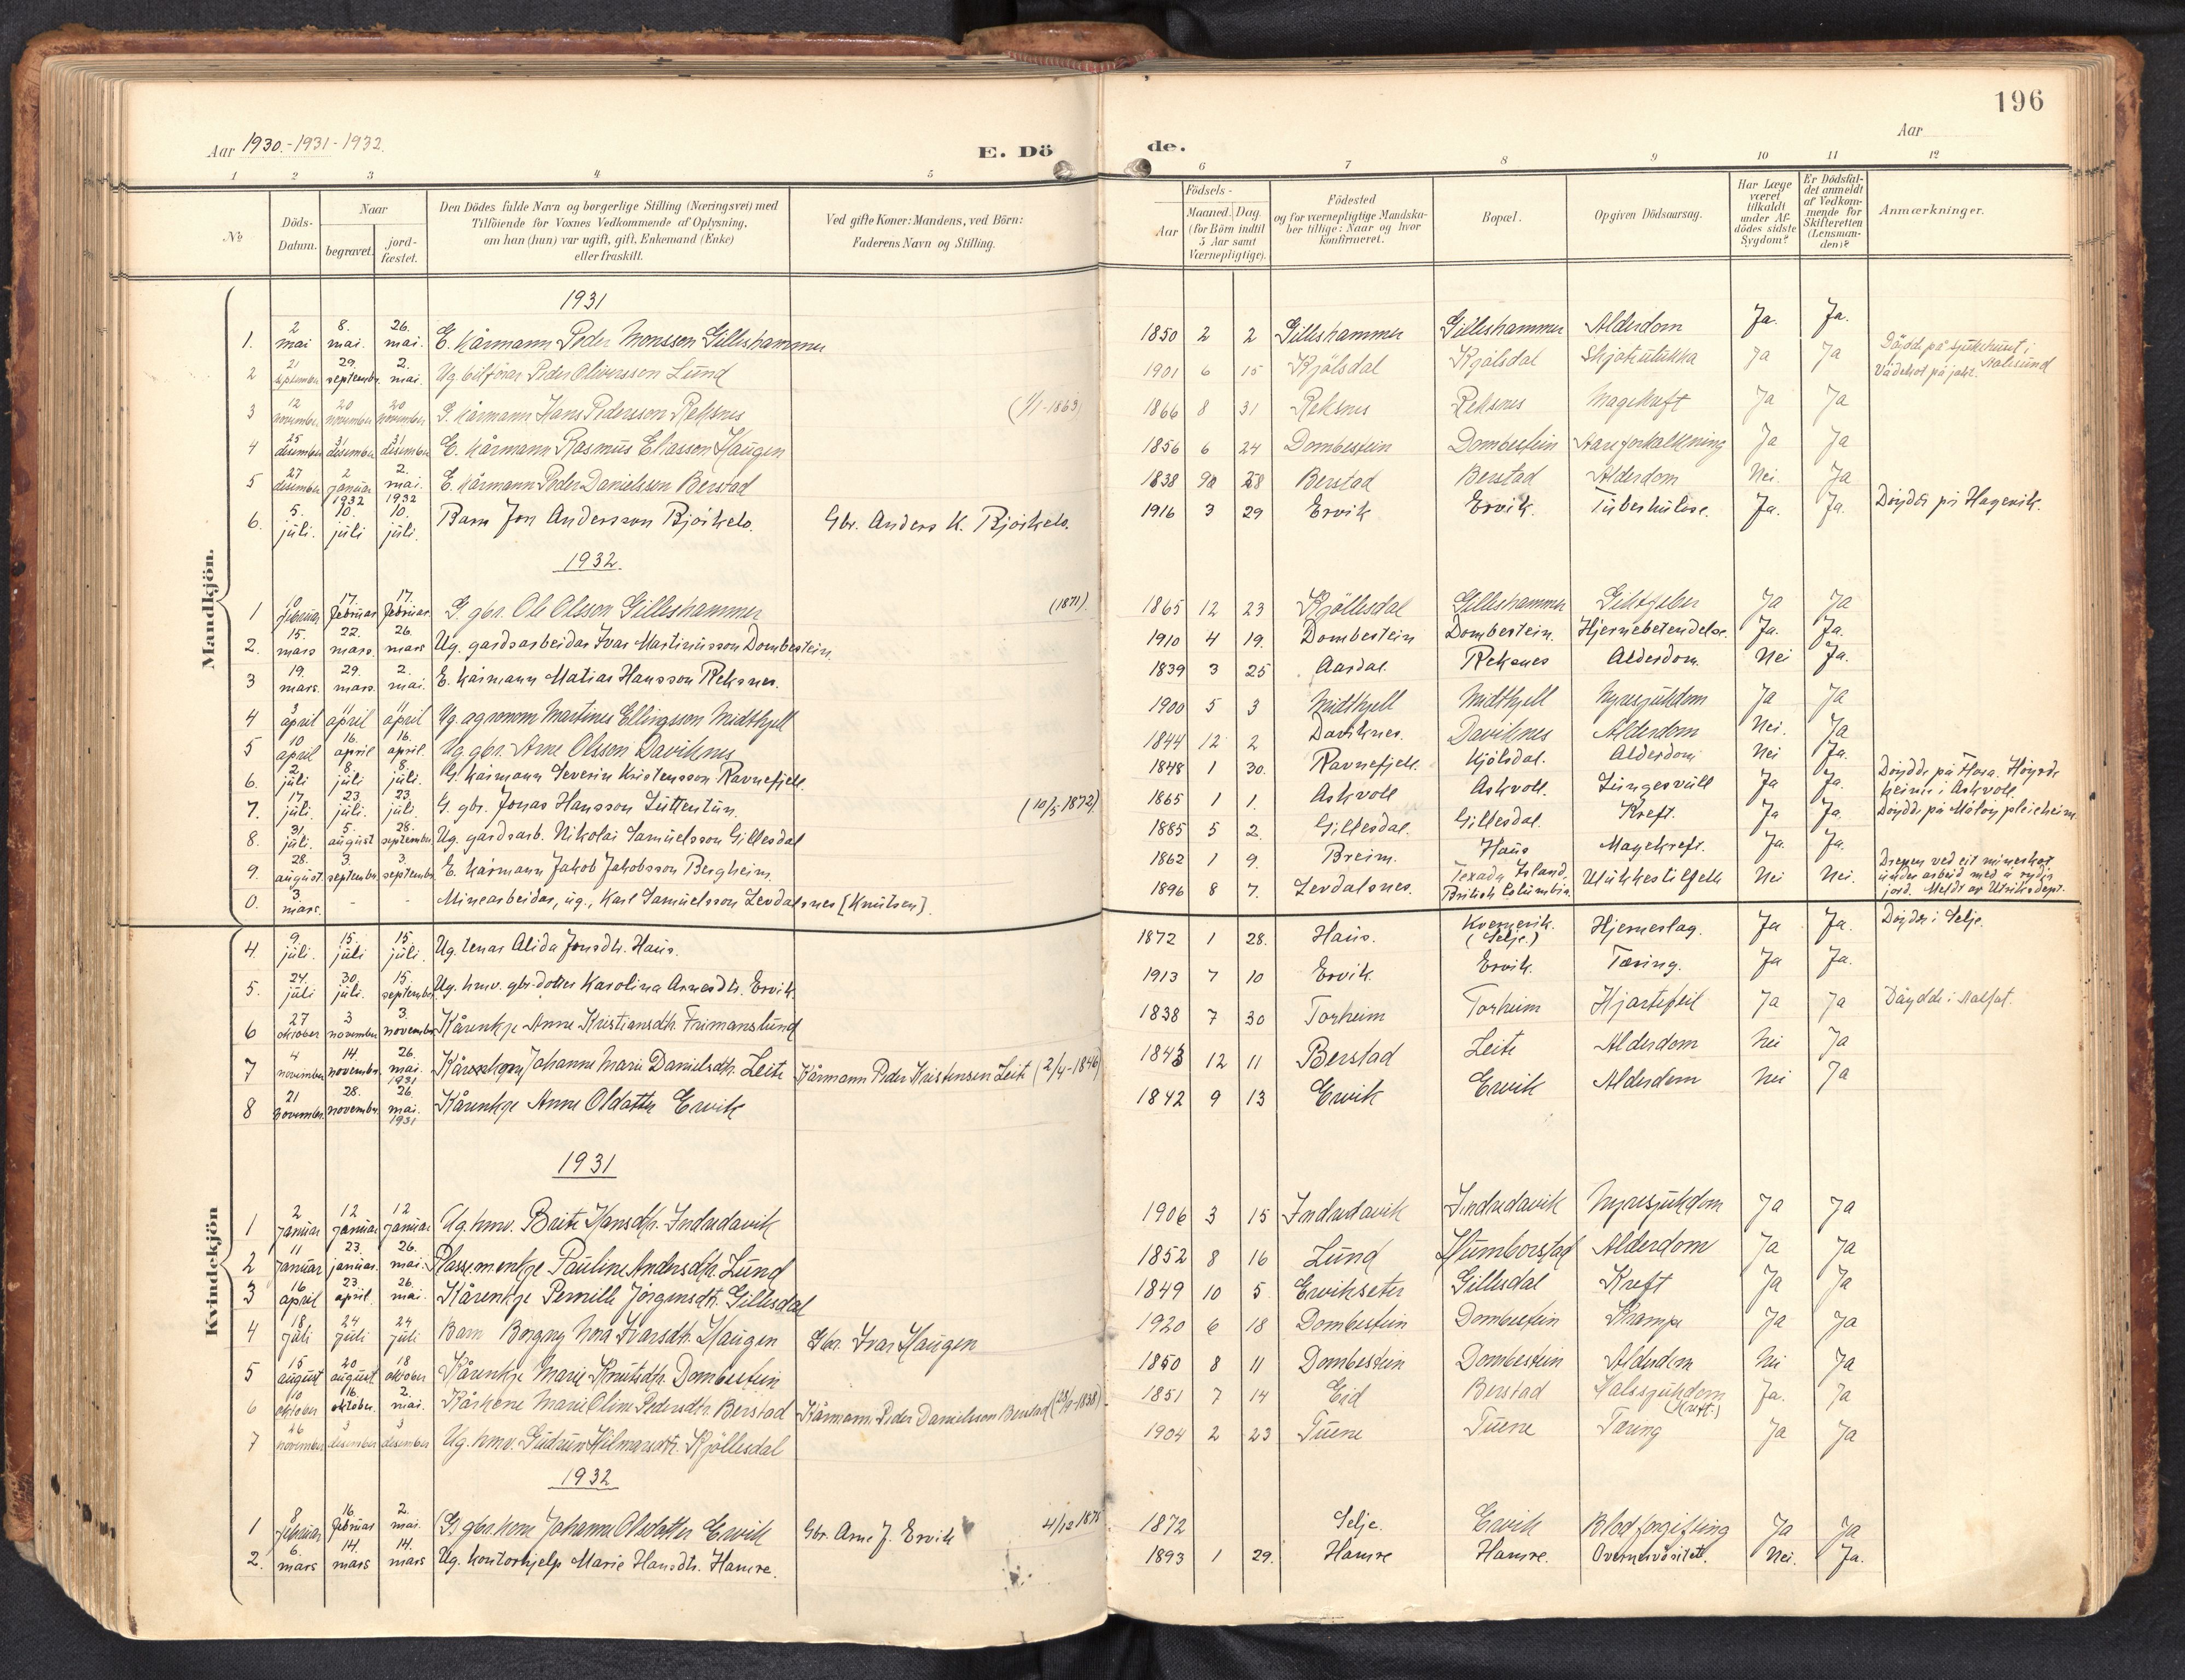 196
Aar 1930.-1931-1932.
E. Dö
de.
Aar
1 2 3 4 5 6 7 8 9 10 11 12
No
Döds-Datum.
Naar
begravet.
jordfæstet.
Den Dödes fulde Navn og borgerlige Stilling (Næringsvei) med
Tilföiende for Voxnes Vedkommende af Oplysning,
om han (hun) var ugift, gift, Enkemand (Enke)
eller fraskilt.
Ved gifte Koner: Mandens, ved Börn:
Faderens Navn og Stilling.
Födsels-
Aar
Maaned. Dag.
(for Börn indtil
5 Aar samt
Værnepligtige).
Födested
og for værnepligtige Mandskaber tillige: Naar og hvor
konfirmeret.
Bopæl.
Opgiven Dödsaarsag.
Har Læge
været
tilkaldt
under Afdödes sidste
Sygdom?
Er Dödsfaldet anmeldt
af Vedkommende for
Skifteretten
(Lensmanden)?
Anmærkninger.
Mandkjön.
1931
1. 2 mai 8. mai. 26. mai. E. kårmann Peder Monsson Gilleshammer 1850 2 2 Gilleshammer Gilleshammer Alderdom Ja. Ja.
2 21 september 29. septembr. 2. mai. Ug bilförar Peder Oliversson Lund 1901 6 15 Kjölsdal Kjölsdal Skjotulukka Ja Ja Döydde på sjukehuset i Aalesund Vådeskot på jakt.
3 12 november 20 november 20 november G. kårmann Hans Pedersson Reksnes (1/1-1863) 1866 8 31 Reksnes Reksnes Magekreft Ja Ja
4 25 desember 31 desember 31 desember E. kårmann Rasmus Eliasson Haugen 1856 6 24 Dombestein Dombestein Aareforkalkning Ja Ja
5 27 desember 2 januar 1932 2. mai. 1932 E. kårmann Peder Danielssen Berstad 1838 28 Berstad Berstad Alderdom Nei. Ja
6. 5. juli. 10. juli 10. juli. Barn Jon Andersson Bjørkelo. Gbr. Anders K. Bjørkelo. 1916 3 29 Ervik Ervik. Tuberkulose. Ja. Ja. Døydde på Hagevik.
1932.
1 10 februar 17. februar 17. februar G. gbr. Ole Olsson Gilleshammer (1871) 1865 12 23 Kjöllesdal Gilleshammer Giktfeber Ja Ja
2. 15. mars 22. mars. 26. mars Ug. gardsarbeidar Ivar Martinusson Dombestein. 1910 4 19. Dombestein Dombestein. Hjernebetendelse. Ja. Ja.
3 19. mars. 29. mars. 2. mai. E. kårmann Matias Hansson Reksnes. 1839 3 25 Aardal. Reksnes Alderdom. Nei Ja.
4 3 april 11 april 11 april Ug. agronom Martines Ellingsson Midthjell 1900 5 3 Midthjell Midthjell Nyresjukdom Ja Ja
5 10 april 16. april 16. april. Ug gbr. Arne Olsson Daviknes 1844 12 2 Daviknes. Daviknes Alderdom Nei. Ja
6. 2 juli 8. juli 8. juli. G. kårmann Severin Kristensson Ravnefjell. 1848 1 30. Ravnefjell. Kjölsdal. Alderdom Nei Ja.
7. 17. juli. 23. juli. 23. juli G. gbr. Jonas Hansson Luttentun. (10/5-1872) 1865 1 1. Askvoll Askvoll. Lungesvull Ja Ja. Døydde på Florø. Høyrde heime i Askvoll.
8. 31. juli. 5. august 28. september Ug. gardsarb. Nikolai Samuelsson Gillesdal 1885 5 2. Gillesdal. Gillesdal. Kreft. Ja Ja. Døydde på Måløy pleieheim.
9. 28. august. 3. september 3. september E. kårmann Jakob Jakobsson Bergheim. 1862 1 9. Breim. Haus Magekreft. Ja. Ja.
0. 3. mars. - - Minearbeidar, ug., Karl Samuelsson Levdalsnes [Knutsen]. 1896 8 7. Levdalsnes. Texada Island, British Columbia. Ulukkestilfelle Nei Nei. Drepen ved eit mineskot under arbeid med å rydje jord. Meldt av Utriksdept.
Kvindekjön
4. 9 juli. 15. juli 15 juli. Ug. tenar Alida Jonsdtr. Haus. 1872 1 28. Haus. Kvernevik. (Selje.) Hjerneslag. Ja Ja. Døydde i Selje.
5. 24. juli 30. juli. 15. september Ug. hmv. gbr.dotter Karolina Arnesdtr. Ervik. 1913 7 10 Ervik. Ervik. Tæring. Ja Ja.
6 27 oktober 3 november 3. november Kårenkje Anne Kristiansdtr. Frimanslund 1838 7 30 Torheim Torheim Hjartefeil Ja Ja Döydde i Aalfot.
7 4 november 14. novembr. 26. mai. 1931 Kårekone Johanne Marie Danielsdtr. Leite Kårmann Peder Kristensen Leite (2/4-1846) 1843 12 11 Berstad Leite Alderdom Nei Ja
8 21 november 28. novembr. 26. mai. 1931 Kårenkje Anne Oldotter Ervik 1842 9 13 Ervik Ervik Alderdom Nei Ja
1931
1 2 januar 12 januar 12 januar Ug. hmv. Beite Hansdtr. Indredavik 1906 3 15 Indredavik Indredavik Nyresjukdom Ja Ja
2 11 januar 23. januar. 26. mai. Plassemenkje Pauline Andersdtr. Lund 1852 8 16 Lund Humborstad Alderdom Ja Ja
3 16 april 23. april. 26. mai. Kårenkje Pernille Jörgensdtr. Gillesdal 1849 10 5 Ervikseter Gillesdal Kreft Ja Ja
4 18 juli 24 juli 24 juli Barn Borgny Nora Ivarsdtr. Haugen Gbr. Ivar Haugen 1920 6 18 Dombestein Dombestein Krampe Ja Ja
5 15 august 20 august. 18 oktober Kårenkje Marie Knutsdtr. Dombestein 1850 8 11 Dombestein Dombestein Alderdom Nei Ja
6 10 oktober 16. oktober. 2. mai. Kårkone Marie Oline Pedersdtr. Berstad Kårmann Peder Danielsson Berstad (28/9-1838) 1851 7 14 Eid Berstad Halssjukdom (Kreft.) Ja. Ja
7 26 november 3 desember 3 desember Ug. hmv. Gudrun Hilmarsdtr. Kjöllesdal 1904 2 23 Tuene Tuene Tæring Ja Ja
1932
1 8 februar 16. februar 2. mai. G. gbr.kone Johanne Olsdotter Ervik Gbr. Arne J. Ervik 4/12 1875 1872 Selje. Ervik Blodforgifting Ja Ja
2. 6. mars 14. mars 14. mars Ug. kontorhjelp Marie Hansdtr. Hamre. 1893 1 29. Hamre Hamre. Overnervøsitet. Nei. Ja.